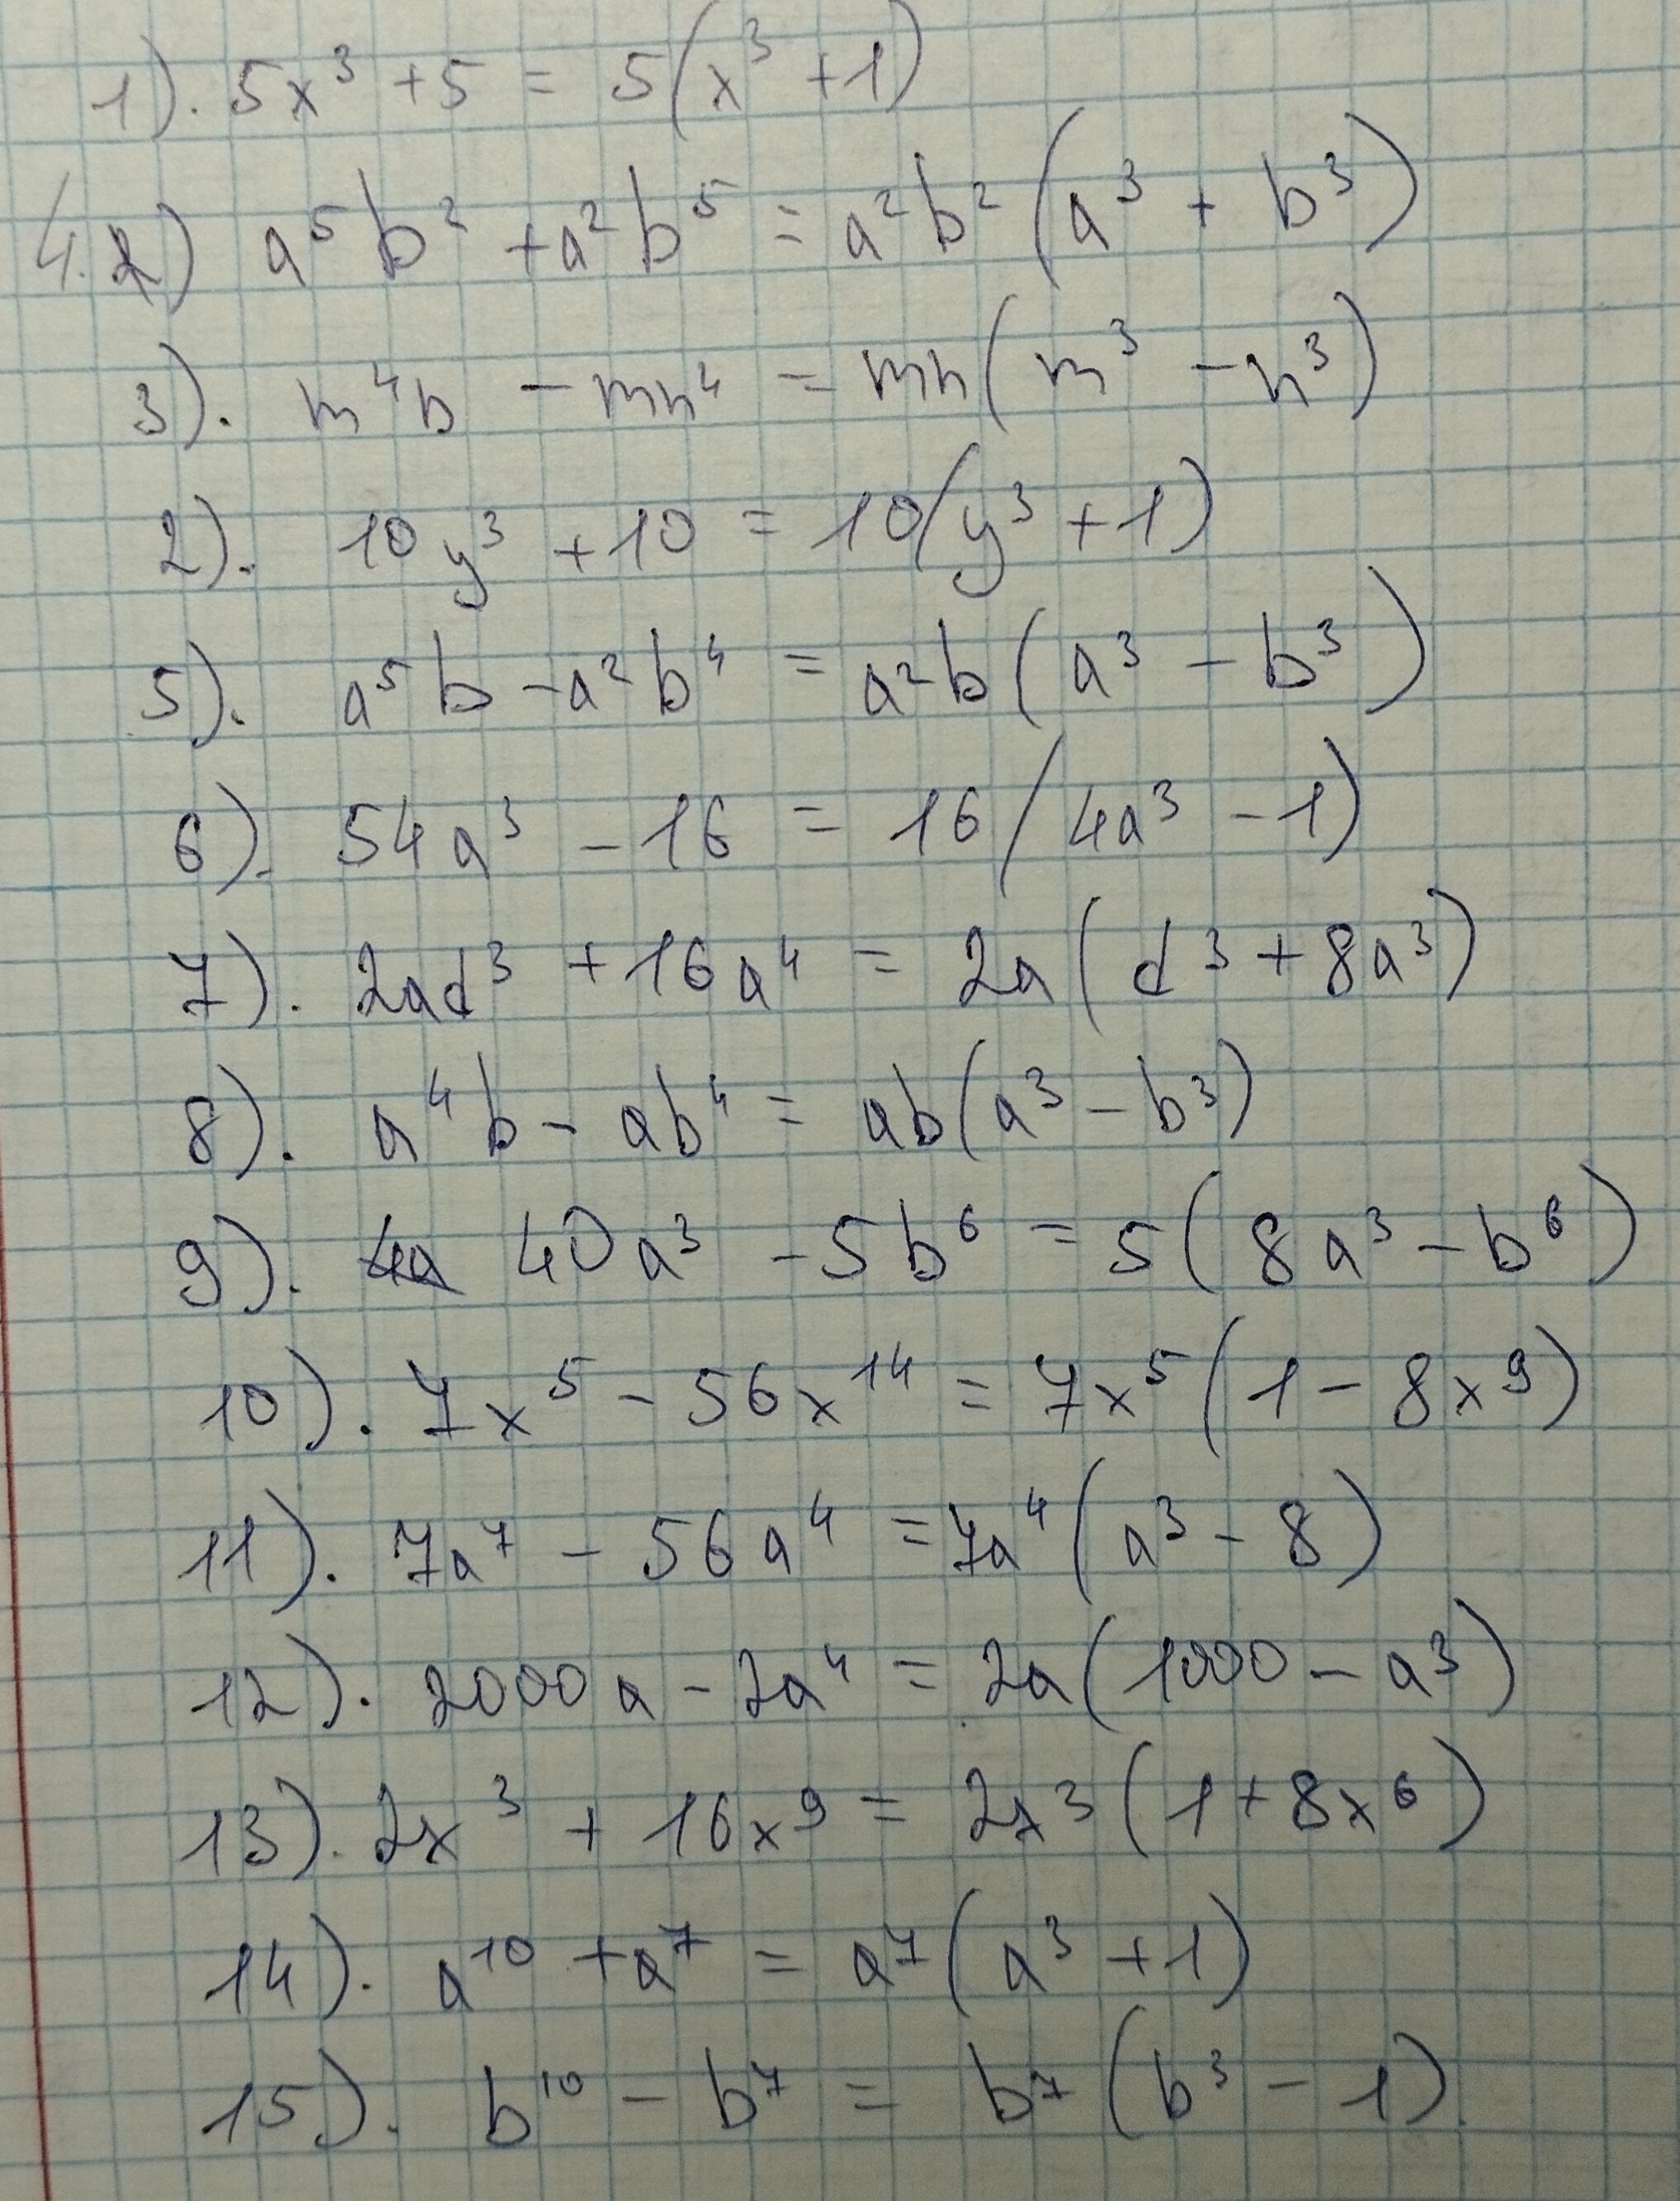 1). 5x³ + 5 = 5(x³ + 1)
4. 2) a⁵b² + a²b⁵ = a²b²(a³ + b³)
3). m⁴n - mn⁴ = mn(m³ - n³)
2). 10y³ + 10 = 10(y³ + 1)
5). a⁵b - a²b⁴ = a²b(a³ - b³)
6). 54a³ - 16 = 16(4a³ - 1)
7). 2ad³ + 16a⁴ = 2a(d³ + 8a³)
8). a⁴b - ab⁴ = ab(a³ - b³)
9). 4a 40a³ - 5b⁶ = 5(8a³ - b⁶)
10). 7x⁵ - 56x¹⁴ = 7x⁵(1 - 8x⁹)
11). 7a⁷ - 56a⁴ = 7a⁴(a³ - 8)
12). 2000a - 2a⁴ = 2a(1000 - a³)
13). 2x³ + 16x⁹ = 2x³(1 + 8x⁶)
14). a¹⁰ + a⁷ = a⁷(a³ + 1)
15). b¹⁰ - b⁷ = b⁷(b³ - 1).